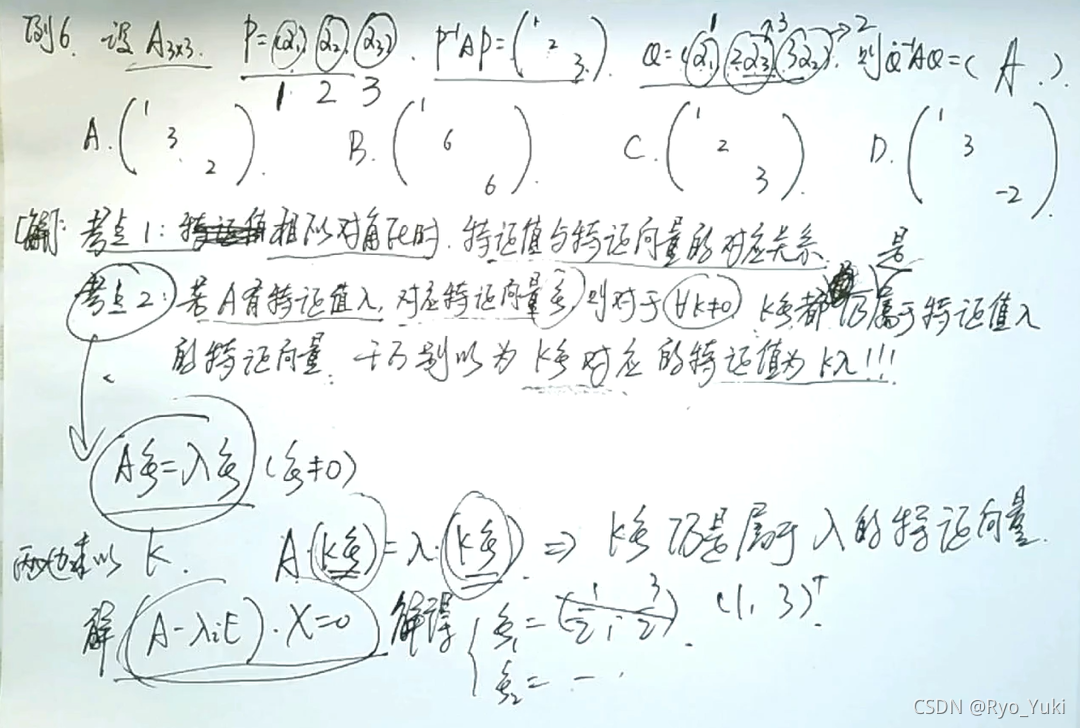 例6. 设 A₃ₓ₃. P=(α₁, α₂, α₃). P⁻¹AP=(1 2 3). Q=(α₁, 2α₃, 3α₂). 则 Q⁻¹AQ=( A ).
1 2 3 1 3 → 2
A. (1 3 2). B. (1 6 6). C. (1 2 3). D. (1 3 -2).
[解]: 考点1: 相似对角化时. 特征值与特征向量的对应关系.
考点2: 若A有特征值λ, 对应特征向量ξ, 则对于∀k≠0 kξ都是属于特征值λ
的特征向量. 千万别以为 kξ对应的特征值为kλ!!!
Aξ=λξ (ξ≠0)
两边乘以 k. A(kξ)=λ·(kξ). ⇒ kξ仍是属于λ的特征向量.
解 (A-λᵢE)·X=0 解得 { ξ₁=(1/2, 3/2) (1, 3)ᵀ.
ξ₂= — ·
CSDN @Ryo_Yuki